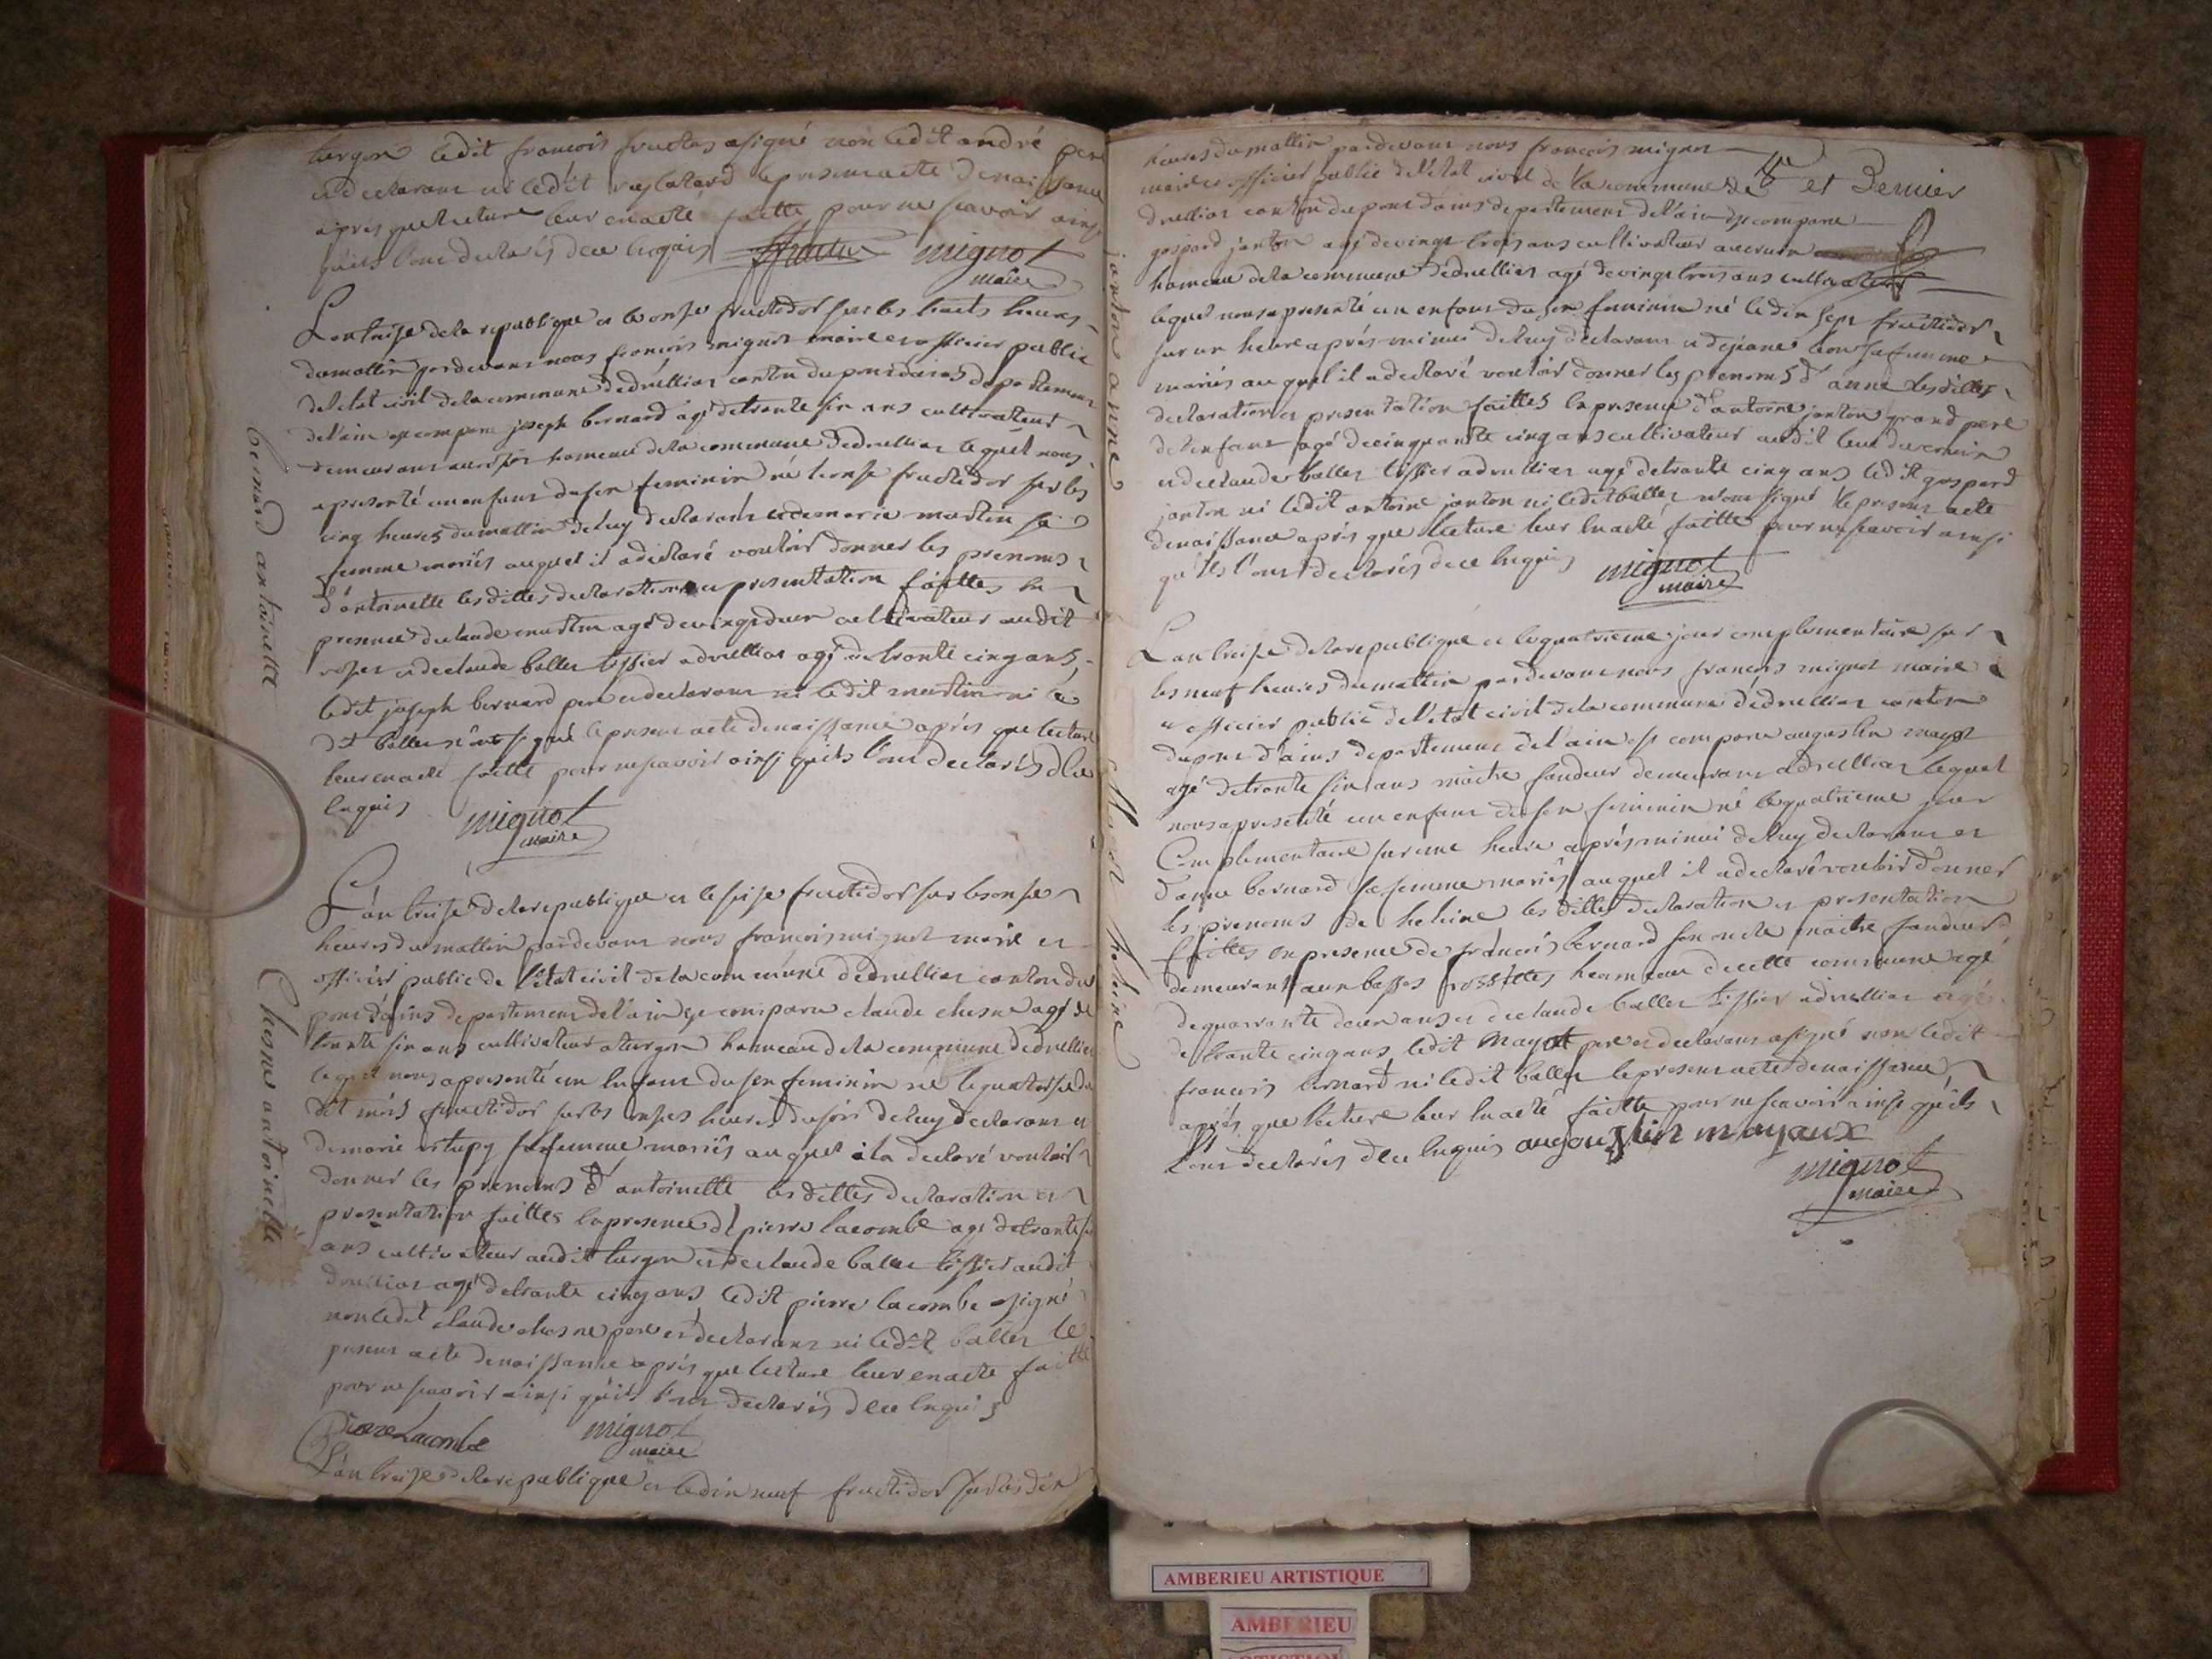 turgon ledit francois fructus asigné non ledit andré pere
et declarant ni ledit le present acte denaissance
aprés que lecture leur enaeté faitte pour ne scavoir ainsi
quils l'ont declarés dece enquis mignot
maire
L'an treise dela republique et le onse fructidor sur les huits heures
dumattin pardevant nous francois mignot maire et officier public
deletat civil dela commune dedruilliat canton dupont dains departement
del'ain est comparu joseph bernard agé detrante six ans cultivateur
demeurant hameau dela commune dedruilliat lequel nous
apresenté un enfant dusexe feminin né le onse fructidor sur les
cinq heures dumattin deluy declarant et de marie martin sa
femme mariés auquel il adeclaré vouloir donner les prenoms
d'antoinette lesdittes declaration et presentation faittes en
presence declaude martin agé devingt deux cultivateur audit
et declaude ballet tissier adruilliat agé detrante cinq ans
ledit joseph bernard pere et declarant ni ledit martin ni le
dit ballet n'ont signé le present acte denaissance aprés que lecture
leur enaeté faitte pour nescavoir ainsi quils l'ont declarés dece
enquis mignot
maire
bernard antoinette
L'an treise dela republique et le seise fructidor sur les onse
heures dumattin pardevant nous francois mignot maire et
officier public de l'etat civil dela commune dedruilliat canton du
pont dains departement del'ain est comparu claude chosne agé de
trante six ans cultivateur aturgon hameau dela commune dedruilliat
lequel nous apresenté un enfant dusexe feminin né lequatorse du
dit mois fructidor sur les onses heures dusoir deluy declarant et
demarie sa femme mariés auquel ila declaré vouloir
donner les prenoms d'antoinette lesdittes declaration et
presentation faittes enpresence de pierre lacombe agé detrante six
ans cultivateur audit turgon et declaude ballet tissier audit
druilliat agé detrante cinq ans ledit pierre lacombe asigné
non ledit claude chosne pere et declarant ni ledit ballet le
present acte denaissance aprés que lecture leur enaeté faitte
pour nescavoir ainsi quils l'ont declarés dece enquis
Pierre Lacombe mignot
maire
Chosne antoinette
L'an treise dela republique et ledix neuf fructidor sur les dix
heures dumattin pardevant nous francois mignot
maire et officier public del'etat civil de la commune de
et Dernier
druilliat canton dupont dains departement del'ain est comparu
gaspard janton agé devingt trois ans cultivateur
hameau dela commune dedruilliat agé devingt trois ans cultivateur
lequel nous apresenté un enfant dusexe feminin né ledix sept fructidor
sur un heure aprés minui deluy declarant et dejeane sa femme
mariés auquel il adeclaré vouloir donner les prenoms d'anne lesdittes
declaration et presentation faittes enpresence d'antoine janton grand pere
del'enfant agé decinquante cinq ans cultivateur audit lieu
et declaude ballet tissier adruilliat agé detrante cinq ans ledit gaspard
janton ni ledit antoine janton ni ledit ballet n'ont signé le present acte
denaissance aprés que lecture leur enaeté faitte pour nescavoir ainsi
qu'ils l'ont declarés dece enquis mignot
maire
janton anne
L'an treise dela republique et le quatrieme jour complementaire sur
les neuf heures dumattin pardevant nous francois mignot maire
et officier public del'etat civil dela commune dedruilliat canton
dupont d'ains departement del'ain est comparu augustin mayot
agé detrante six ans maitre fondeur demeurant adruilliat lequel
nous apresenté un enfant dusexe feminin né le quatrieme jour
Complementaire sur une heure aprés minui deluy declarant et
d'anne bernard sa femme mariés auquel il adeclaré vouloir donner
les prenoms de heleine les dittes declaration et presentation
faittes en presence de francois bernard son oncle maitre fondeur
demeurant aux basses hameau decette commune agé
dequarrante deux ans et declaude ballet tissier adruilliat agé
de trante cinq ans ledit Mayot pere et declarant asigné non ledit
francois bernard ni ledit ballet le present acte denaissance
aprés que lecture leur enaeté faitte pour nescavoir ainsi quils
l'ont declarés dece enquis augoustin mayaux
mignot
maire
AMBERIEU ARTISTIQUE
AMBERIEU
ARTISTIQUE